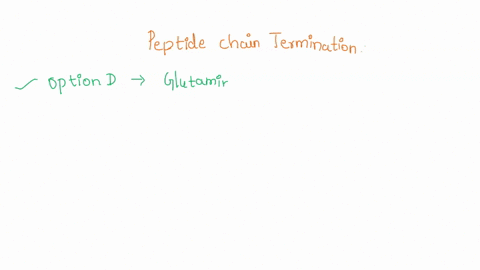 Peptide chain Termination.
✓ option D → Glutamin